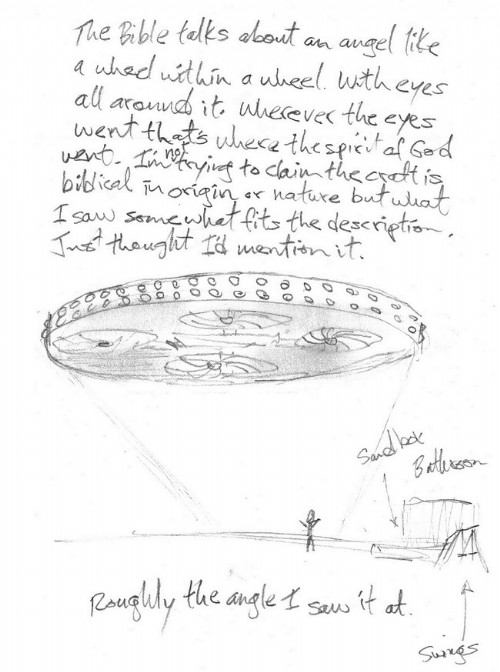 The Bible talks about an angel like
a wheel within a wheel. With eyes
all around it. Wherever the eyes
went that's where the spirit of God
went. I'm not trying to claim the craft is
biblical in origin or nature but what
I saw somewhat fits the description.
Just thought I'd mention it.
Sandbox
Bathroom
Roughly the angle I saw it at.
Swings